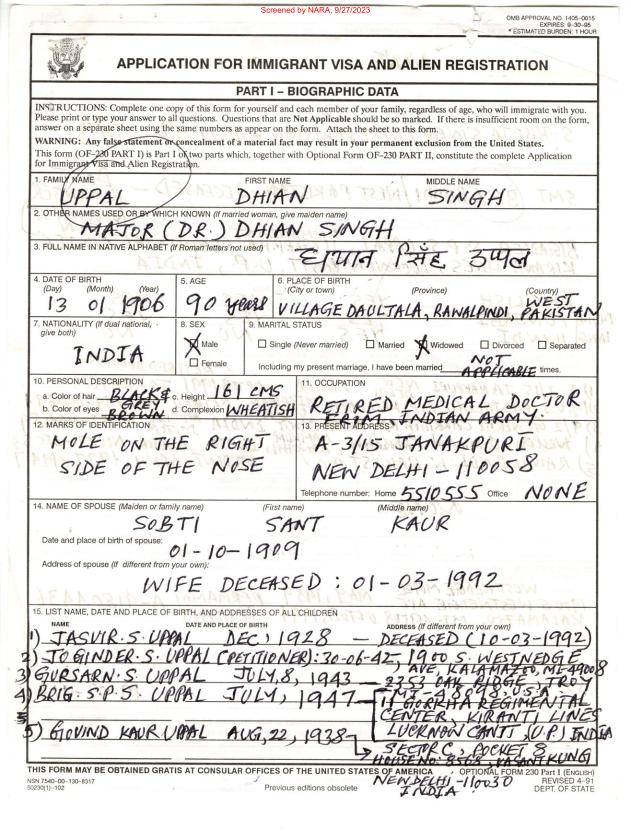 Screened by NARA, 9/27/2023
OMB APPROVAL NO. 1405-0015
EXPIRES: 9-30-95
* ESTIMATED BURDEN: 1 HOUR
APPLICATION FOR IMMIGRANT VISA AND ALIEN REGISTRATION
PART I – BIOGRAPHIC DATA
INSTRUCTIONS: Complete one copy of this form for yourself and each member of your family, regardless of age, who will immigrate with you.
Please print or type your answer to all questions. Questions that are Not Applicable should be so marked. If there is insufficient room on the form,
answer on a separate sheet using the same numbers as appear on the form. Attach the sheet to this form.
WARNING: Any false statement or concealment of a material fact may result in your permanent exclusion from the United States.
This form (OF-230 PART I) is Part I of two parts which, together with Optional Form OF-230 PART II, constitute the complete Application
for Immigrant Visa and Alien Registration.
1. FAMILY NAME FIRST NAME MIDDLE NAME
UPPAL DHIAN SINGH
2. OTHER NAMES USED OR BY WHICH KNOWN (If married woman, give maiden name)
MAJOR (DR.) DHIAN SINGH
3. FULL NAME IN NATIVE ALPHABET (If Roman letters not used)
ध्यान सिंह उप्पल
4. DATE OF BIRTH 5. AGE 6. PLACE OF BIRTH
(Day) (Month) (Year) (City or town) (Province) (Country)
13 01 1906 90 years VILLAGE DAULTALA, RAWALPINDI, WEST PAKISTAN
7. NATIONALITY (If dual national, give both) 8. SEX 9. MARITAL STATUS
INDIA Male Single (Never married) Married Widowed Divorced Separated
Female Including my present marriage, I have been married NOT APPLICABLE times.
10. PERSONAL DESCRIPTION 11. OCCUPATION
a. Color of hair BLACK & GREY c. Height 161 CMS
b. Color of eyes BROWN d. Complexion WHEATISH
RETIRED MEDICAL DOCTOR
FROM INDIAN ARMY.
12. MARKS OF IDENTIFICATION 13. PRESENT ADDRESS
MOLE ON THE RIGHT A-3/15 JANAKPURI
SIDE OF THE NOSE NEW DELHI - 110058
Telephone number: Home 5510555 Office NONE
14. NAME OF SPOUSE (Maiden or family name) (First name) (Middle name)
SOBTI SANT KAUR
Date and place of birth of spouse:
01-10-1909
Address of spouse (If different from your own):
WIFE DECEASED : 01-03-1992
15. LIST NAME, DATE AND PLACE OF BIRTH, AND ADDRESSES OF ALL CHILDREN
NAME DATE AND PLACE OF BIRTH ADDRESS (If different from your own)
1) JASVIR.S.UPPAL DEC, 1928 — DECEASED (10-03-1992)
2) JOGINDER.S.UPPAL (PETITIONER): 30-06-42, 1900 S. WESTNEDGE
AVE, KALAMAZOO, MI-49008
3) GURSARN.S.UPPAL JULY, 8, 1943 — 2353 OAK RIDGE, TROY
MI-48098, U.S.A
4) BRIG. S.P.S. UPPAL JULY, 1947 — 11 GORKHA REGIMENTAL
CENTER, KIRANTI LINES
LUCKNOW CANTT, (U.P.) INDIA
5) GOVIND KAUR UPPAL AUG, 22, 1938
SECTOR C, POCKET 8
HOUSE NO: 8568, VASANT KUNJ
NEW DELHI - 110030
INDIA
THIS FORM MAY BE OBTAINED GRATIS AT CONSULAR OFFICES OF THE UNITED STATES OF AMERICA
OPTIONAL FORM 230 Part I (ENGLISH)
NSN 7540-00-130-8317
50230(1)-102
Previous editions obsolete
REVISED 4-91
DEPT. OF STATE